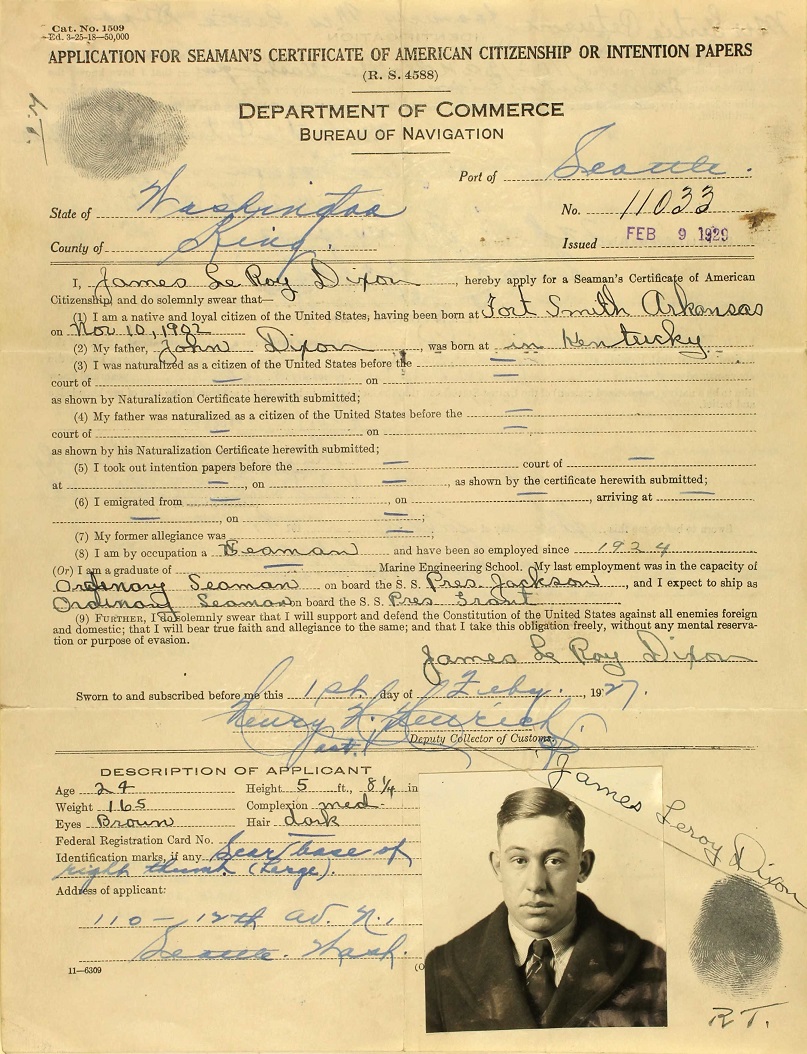 Cat. No. 1509
Ed. 3-25-18—50,000
APPLICATION FOR SEAMAN'S CERTIFICATE OF AMERICAN CITIZENSHIP OR INTENTION PAPERS
(R. S. 4588)
DEPARTMENT OF COMMERCE
BUREAU OF NAVIGATION
Port of Seattle.
State of Washington
No. 11033
County of King.
Issued FEB 9 1929
I, James Le Roy Dixon, hereby apply for a Seaman's Certificate of American
Citizenship, and do solemnly swear that—
(1) I am a native and loyal citizen of the United States, having been born at Fort Smith Arkansas
on Nov 10, 1902
(2) My father, John Dixon, was born at in Kentucky
(3) I was naturalized as a citizen of the United States before the —
court of — on —
as shown by Naturalization Certificate herewith submitted;
(4) My father was naturalized as a citizen of the United States before the —
court of — on —
as shown by his Naturalization Certificate herewith submitted;
(5) I took out intention papers before the — court of —
at —, on —, as shown by the certificate herewith submitted;
(6) I emigrated from —, on —, arriving at —
—, on —;
(7) My former allegiance was —;
(8) I am by occupation a Seaman and have been so employed since 1924
(Or) I am a graduate of — Marine Engineering School. My last employment was in the capacity of
Ordinary Seaman on board the S. S. Pres. Jackson, and I expect to ship as
Ordinary Seaman on board the S. S. Pres. Grant
(9) FURTHER, I do solemnly swear that I will support and defend the Constitution of the United States against all enemies foreign
and domestic; that I will bear true faith and allegiance to the same; and that I take this obligation freely, without any mental reserva-
tion or purpose of evasion.
James Le Roy Dixon
Sworn to and subscribed before me this 1st day of Feby., 1927.
Henry
Deputy Collector of Customs.
DESCRIPTION OF APPLICANT
Age 24 Height 5 ft., 8¼ in
Weight 165 Complexion med.
Eyes Brown Hair dark
Federal Registration Card No.
Identification marks, if any Scar base of
right thumb (Large).
Address of applicant:
110-12th Av. N.,
Seattle. Wash.
11—6309
James Leroy Dixon
R T.